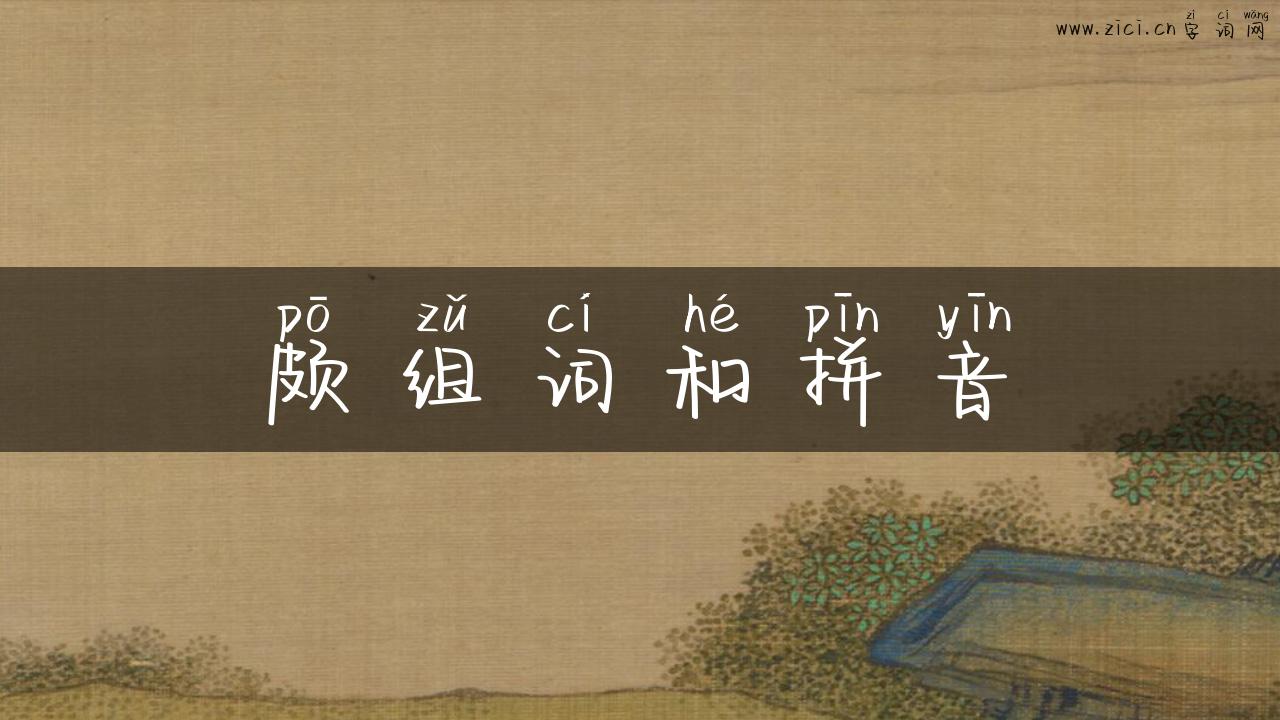 zì cí wǎng
www.zici.cn 字词网
pō zǔ cí hé pīn yīn
颇组词和拼音